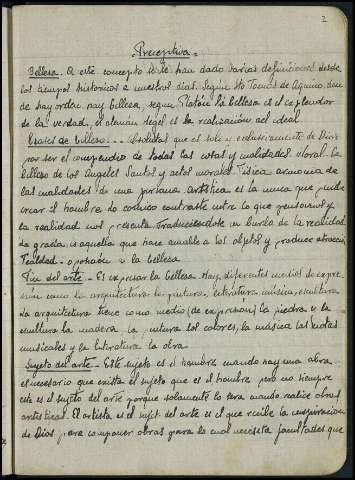 2
Preceptiva.
Belleza. A este concepto se le han dado varias definiciones desde
los tiempos historicos a nuestros dias. Según Sto Tomas de Aquino, don
de hay orden hay belleza, segun Platón la belleza es el esplendor
de la verdad, el alemán Hegel es la realización del ideal
Clases de belleza... Absoluta que es solo y exclusivamente de Dios
por ser el compendio de todas las cosas y cualidades. Moral. La
belleza de los Angeles Santos y actos morales. Fisica armonia de
las cualidades de una persona. Artística es la unica que puede
crear el hombre Lo comico contraste entre lo que pensamos y
la realidad nos presenta. Traduciendote en burla de la realidad
La gracia es aquello que hace amable a los objetos y produce atracción
Fealdad - oposición a la belleza
Fin del arte - Es expresar la belleza. Hay diferentes medios de expre
sión como la arquitectura la pintura, literatura, música, escultura
La arquitectura tiene como medio (de expresión) la piedra y la
escultura la madera la pintura los colores, la música las notas
musicales y la literatura la obra
Sujeto del arte - Este sujeto es el hombre cuando hay una obra
es necesario que exista el sujeto que es el hombre pero no siempre
este es el sujeto del arte porque solamente lo sera cuando realice obras
artisticas. El artista es el sujet del arte es el que recibe la inspiracion
de Dios para componer obras para lo cual necesita facultades que